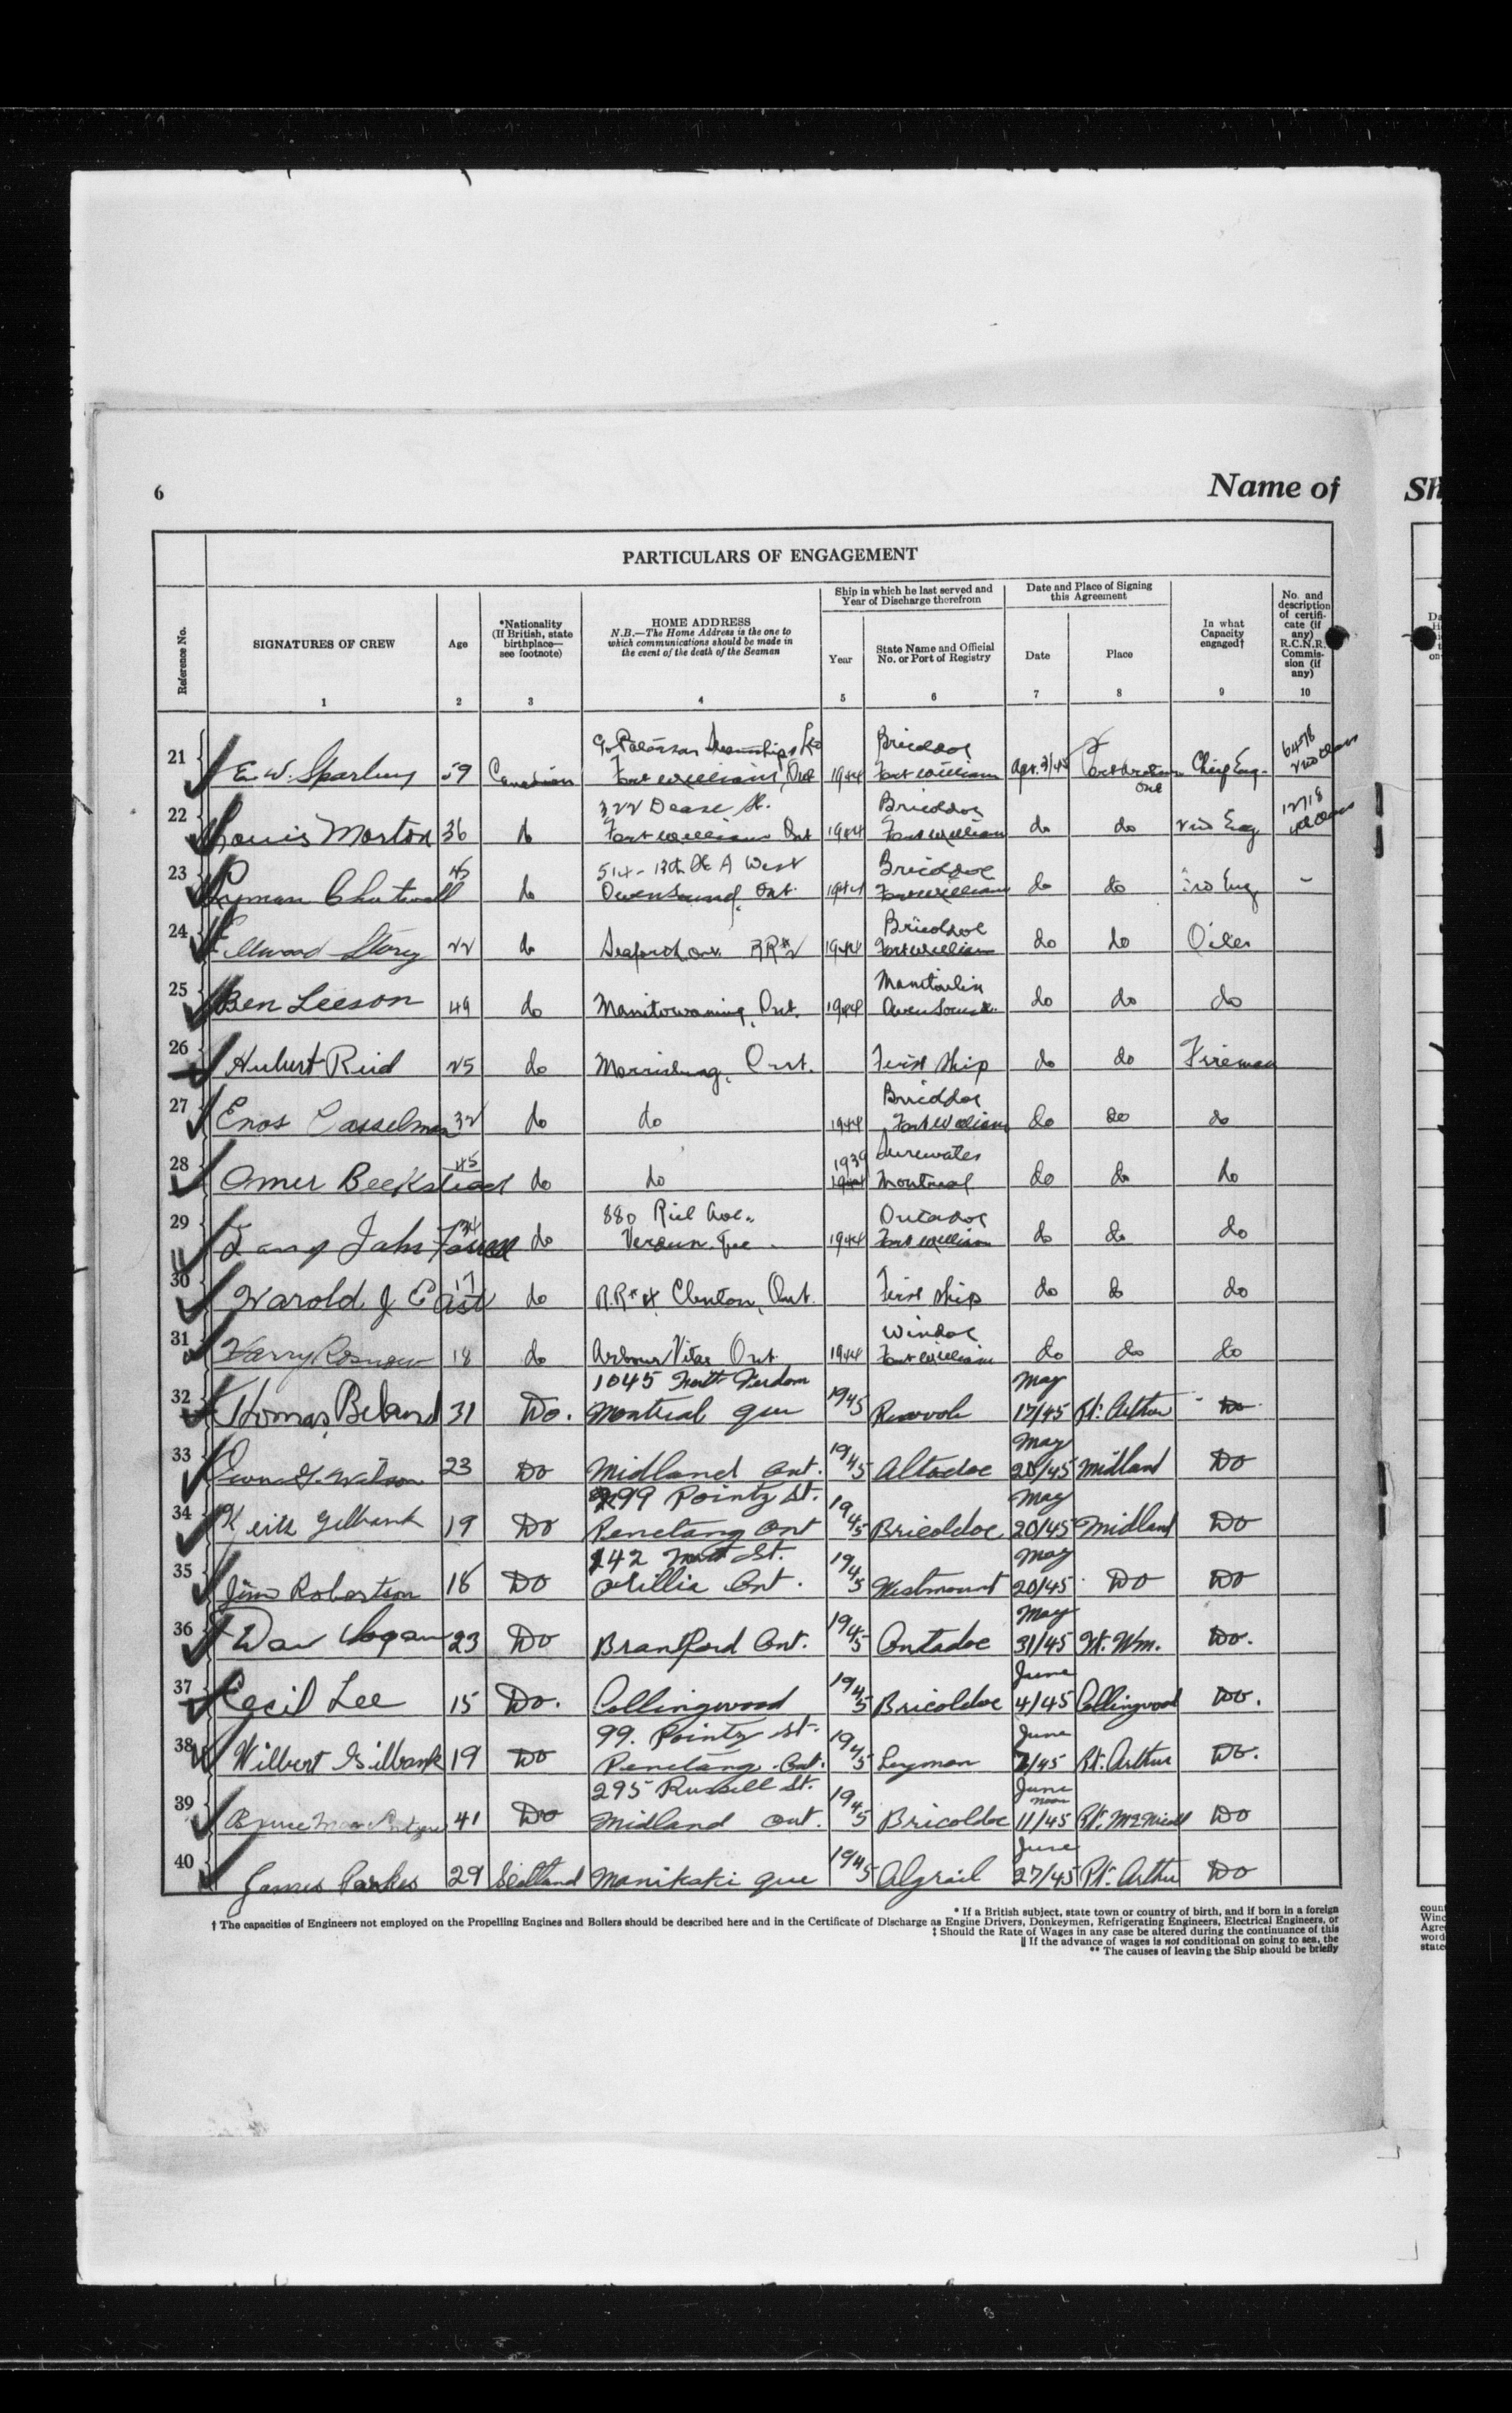 6
Name of
Sh
PARTICULARS OF ENGAGEMENT
Reference No.
SIGNATURES OF CREW
Age
*Nationality
(If British, state
birthplace—
see footnote)
HOME ADDRESS
N.B.—The Home Address is the one to
which communications should be made in
the event of the death of the Seaman
Ship in which he last served and
Year of Discharge therefrom
Year
State Name and Official
No. or Port of Registry
Date and Place of Signing
this Agreement
Date
Place
In what
Capacity
engaged†
No. and
description
of certifi-
cate (if
any)
R.C.N.R.
Commis-
sion (if
any)
1 2 3 4 5 6 7 8 9 10
Steamships Bricoldoc 6478
21 E. W. Sparling 59 Canadian Fort William, Ont 1944 Fort William Apr. 3/45 Port Arthur Ont Chief Eng.
322 Dease St. Bricoldoc 12718
22 Louis Morton 36 do Fort William Ont 1944 Fort William do do 2nd Eng
45 514 - 13th St A West Bricoldoc
23 Lyman Chatwell do Owen Sound, Ont. 1944 Fort William do do 3rd Eng -
Bricoldoc
24 Ellwood Storey 22 do Seaforth Ont. RR#2 1944 Fort William do do Oiler
Manitoulin
25 Ben Leeson 49 do Manitowaning, Ont. 1944 Owen Sound do do do
26 Hubert Reid 25 do Morrisburg, Ont. First Ship do do Fireman
Bricoldoc
27 Enos Casselman 32 do do 1944 Fort William do do do
45 1939
28 Omer Beckstead do do Montreal do do do
34 880 Riel Ave. Ontadoc
29 John do Verdun Que 1944 Fort William do do do
17
30 Harold J East do R.R#4 Clinton, Ont. First Ship do do do
Windoc
31 Harry 18 do Arbour Vitae Ont 1944 Fort William do do do
1045 Verdun May
32 Thomas Beland 31 Do. Montreal Que 1945 17/45 Pt. Arthur Do
May
33 Wilson 23 Do Midland Ont. 1945 Altadoc 20/45 Midland Do
99 Pointz St. May
34 Keith Gilbank 19 Do Penetang Ont 1945 Bricoldoc 20/45 Midland Do
142 St. May
35 Jim Robertson 18 Do Orillia Ont. 1945 Westmount 20/45 Do Do
May
36 Dan Logan 23 Do Brantford Ont. 1945 Ontadoc 31/45 Ft. Wm. Do.
June
37 Cecil Lee 15 Do. Collingwood 1945 Bricoldoc 4/45 Collingwood Do.
99. Pointz St. June
38 Wilbert Gilbank 19 Do Penetang. Ont. 1945 Leyman 7/45 Pt. Arthur Do.
295 Russell St. June
39 Bruce 41 Do Midland Ont. 1945 Bricoldoc 11/45 Pt. McNicoll Do
June
40 James Parkes 29 Scotland Manikaki Que 1945 Algrail 27/45 Pt. Arthur Do
* If a British subject, state town or country of birth, and if born in a foreign
† The capacities of Engineers not employed on the Propelling Engines and Boilers should be described here and in the Certificate of Discharge as Engine Drivers, Donkeymen, Refrigerating Engineers, Electrical Engineers, or
‡ Should the Rate of Wages in any case be altered during the continuance of this
|| If the advance of wages is not conditional on going to sea, the
** The causes of leaving the Ship should be briefly